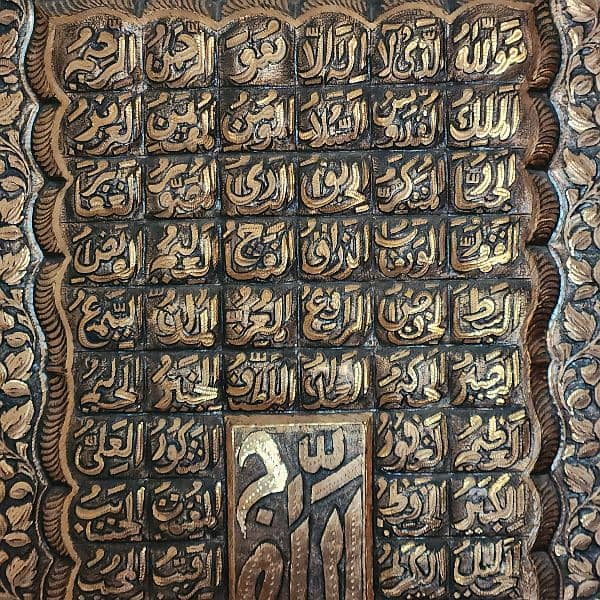 هو الله الذي لا إله إلا هو الرحمن الرحيم
الملك القدوس السلام المؤمن المهيمن العزيز
الجبار المتكبر الخالق البارئ المصور الغفور
القهار الوهاب الرزاق الفتاح العليم القابض
الباسط الخافض الرافع المعز المذل السميع
البصير الحكم العدل اللطيف الخبير الحليم
العظيم الغفور الشكور العلي
الكبير الحفيظ المقيت الحسيب
الجليل الكريم